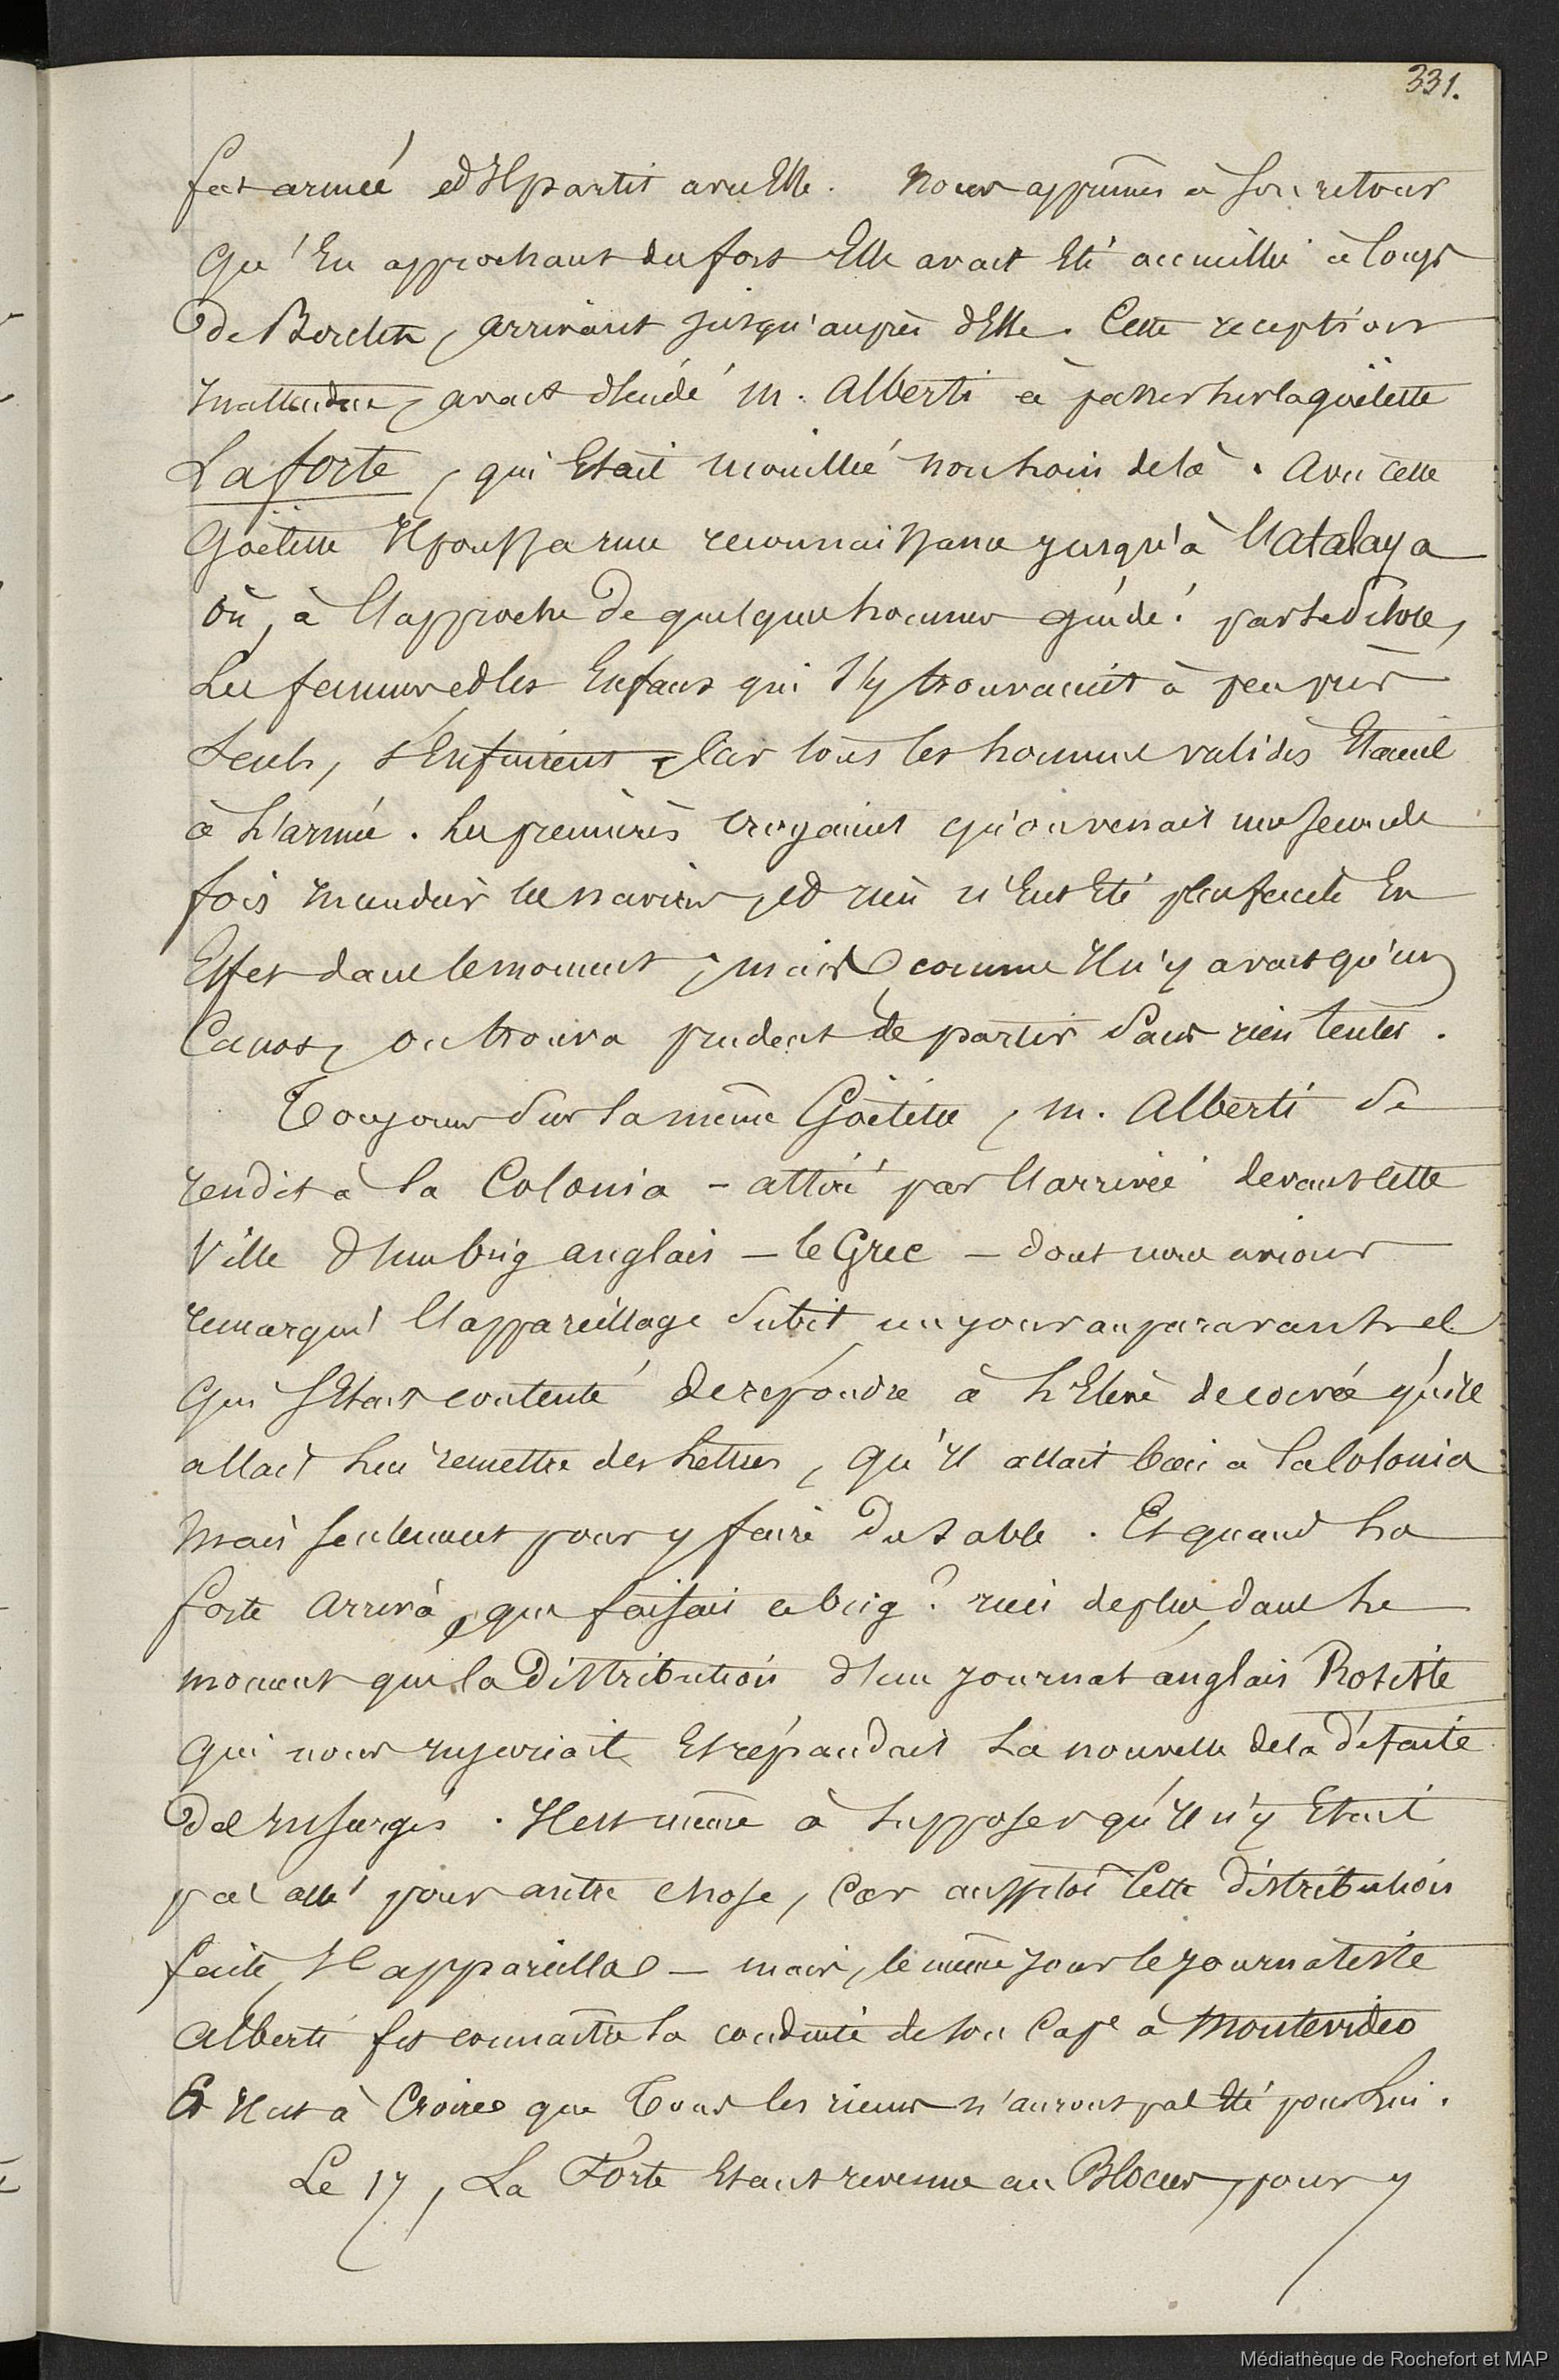 331.
fut armée et Il partit avec Elle. Nous apprimes à son retour
qu'En approchant du fort Elle avait Eté accueillie à coups
de Boulets, arrivant jusqu'auprès d'Elle. Cette reception
Inattendue, avait décidé M. Alberti à passer sur la goëlette
La forte, qui Etait mouillée non loin de là. Avec cette
Goëlette Il poussa une reconnaissance jusqu'à l'Atalaya
où, à l'approche de quelques hommes guidés par le Pilote,
Les femmes et les Enfans qui s'y trouvaient à peu près
seuls, s'Enfuirent, Car tous les hommes valides Etaient
à L'armée. Les premières croyaient qu'on venait une seconde
fois Incendier les navires, et rien n'Eut Eté plus facile En
Effet dans le moment ; mais comme Il n'y avait qu'un
Canot, on trouva prudent de partir sans rien tenter.
Toujours sur la même Goëlette, M. Alberti se
rendit à la Colonia - attiré par l'arrivée devant cette
Ville d'un brig anglais - le Grec - dont nous avions
remarqué l'appareillage subit un jour auparavant et
qui s'Etait contenté de répondre à L'Elève de corvée qu'Il
allait lui remettre des Lettres, qu'Il allait bien à la Colonia
mais seulement pour y faire du sable. Et quand La
forte arriva, que faisait ce brig ? rien de plus, dans le
moment que la Distribution d'un journal anglais Rosiste
qui nous injuriait Et répandait La nouvelle de la défaite
des Insurgés. Il est même à supposer qu'Il n'y Etait
pas allé pour autre chose, Car aussitôt Cette distribution
faite, Il appareilla - mais, le même jour le journaliste
Alberti fit connaître la conduite de son Cape à Montevideo
Et Il est à Croire que Tous les rieurs n'auront pas Eté pour Lui.
Le 17, La Forte Etant revenue au Blocus, pour y
Médiathèque de Rochefort et MAP